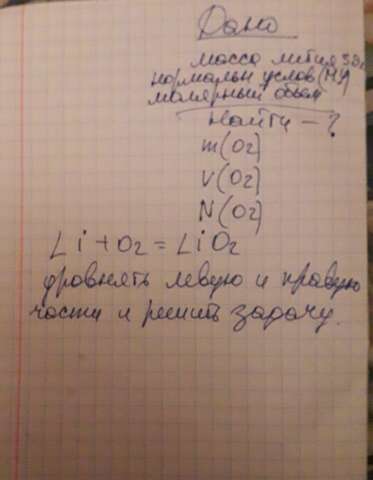 Дано
масса лития
нормальн услов (НУ)
молярный объем
Найти - ?
m(O2)
V(O2)
N(O2)
Li + O2 = LiO2
уровнять левую и правую
части и решить задачу.